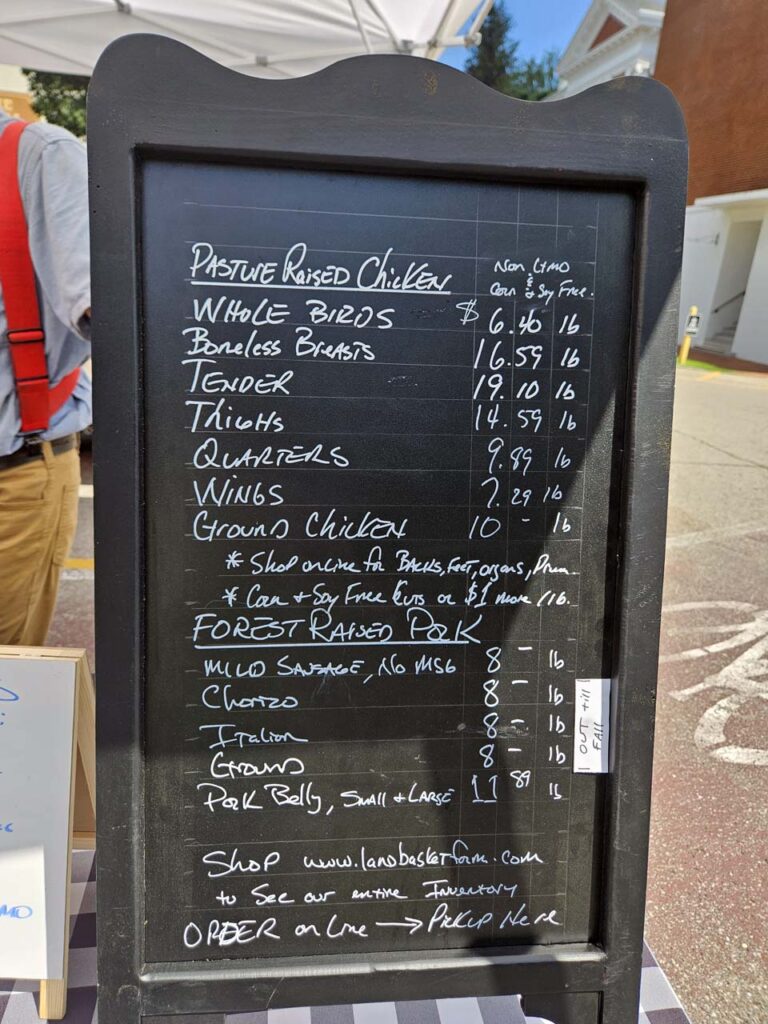 PASTURE RAISED CHICKEN
Non GMO
& Corn & Soy Free.
WHOLE BIRDS $6.40 lb
Boneless Breasts 16.59 lb
TENDER 19.10 lb
THIGHS 14.59 lb
QUARTERS 9.89 lb
WINGS 7.29 lb
GROUND CHICKEN 10 - lb
* Shop online for BACKS, FEET, organs,
* Corn + Soy Free Cuts or $1 more / lb.
FOREST RAISED PORK
MILD SAUSAGE, NO MSG 8 - lb
Chorizo 8 - lb
Italian 8 - lb
GROUND 8 - lb
OUT till FALL
Pork Belly, SMALL + LARGE 11 89 lb
SHOP www.landbasketfarm.com
to See our entire Inventory
ORDER on Line → PICKUP Here